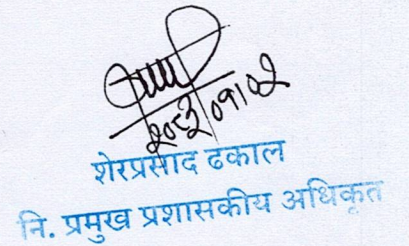 २०८३/०१/०२
शेरप्रसाद ढकाल
नि. प्रमुख प्रशासकीय अधिकृत